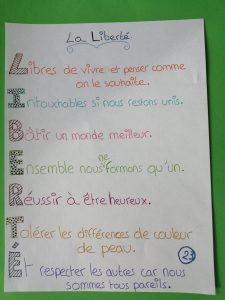 La Liberté
Libres de vivre et penser comme
on le souhaite.
Intouchables si nous restons unis.
Bâtir un monde meilleur.
Ensemble nous ne formons qu'un.
Réussir à être heureux.
Tolérer les différences de couleur
de peau.
Et respecter les autres car nous
sommes tous pareils.